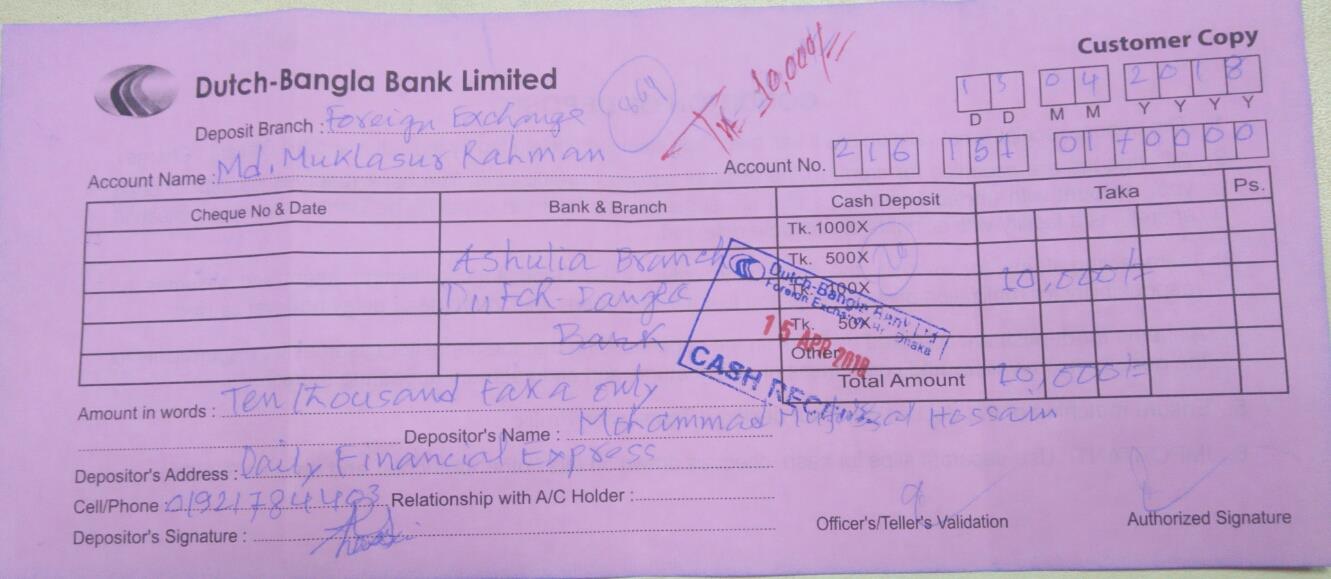 Customer Copy
Dutch-Bangla Bank Limited
Tk 10,000/=
13 04 2018
D D M M Y Y Y Y
Deposit Branch : Foreign Exchange
Account Name : Md. Muklasur Rahman
Account No. 216 157 0170000
Cheque No & Date Bank & Branch Cash Deposit Taka Ps.
Tk. 1000X
Ashulia Branch Tk. 500X 20 10,000/=
Dutch-Bangla Tk. 100X
Bank Tk. 50X
Other
Total Amount 10,000/=
Dutch-Bangla Bank Ltd
Foreign Exchange Br. Dhaka
15 APR 2018
CASH
Amount in words : Ten Thousand taka only
Depositor's Name : Mohammad Hossain
Depositor's Address : Daily Financial Express
Cell/Phone : 01921784403 Relationship with A/C Holder :
Depositor's Signature :
Officer's/Teller's Validation
Authorized Signature